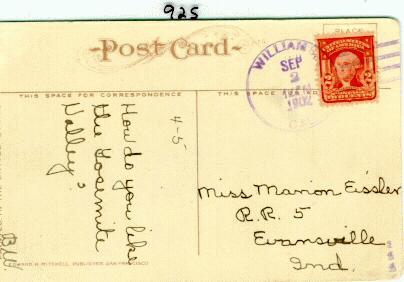 925
Post Card
THIS SPACE FOR CORRESPONDENCE
THIS SPACE FOR
PLACE
WILLIAM
SEP
2
CAL
4-5
How do you like
the Yosemite
Valley?
BW
Miss Marion Eissler
R.R. 5
Evansville
Ind.
EDWARD H. MITCHELL, PUBLISHER, SAN FRANCISCO